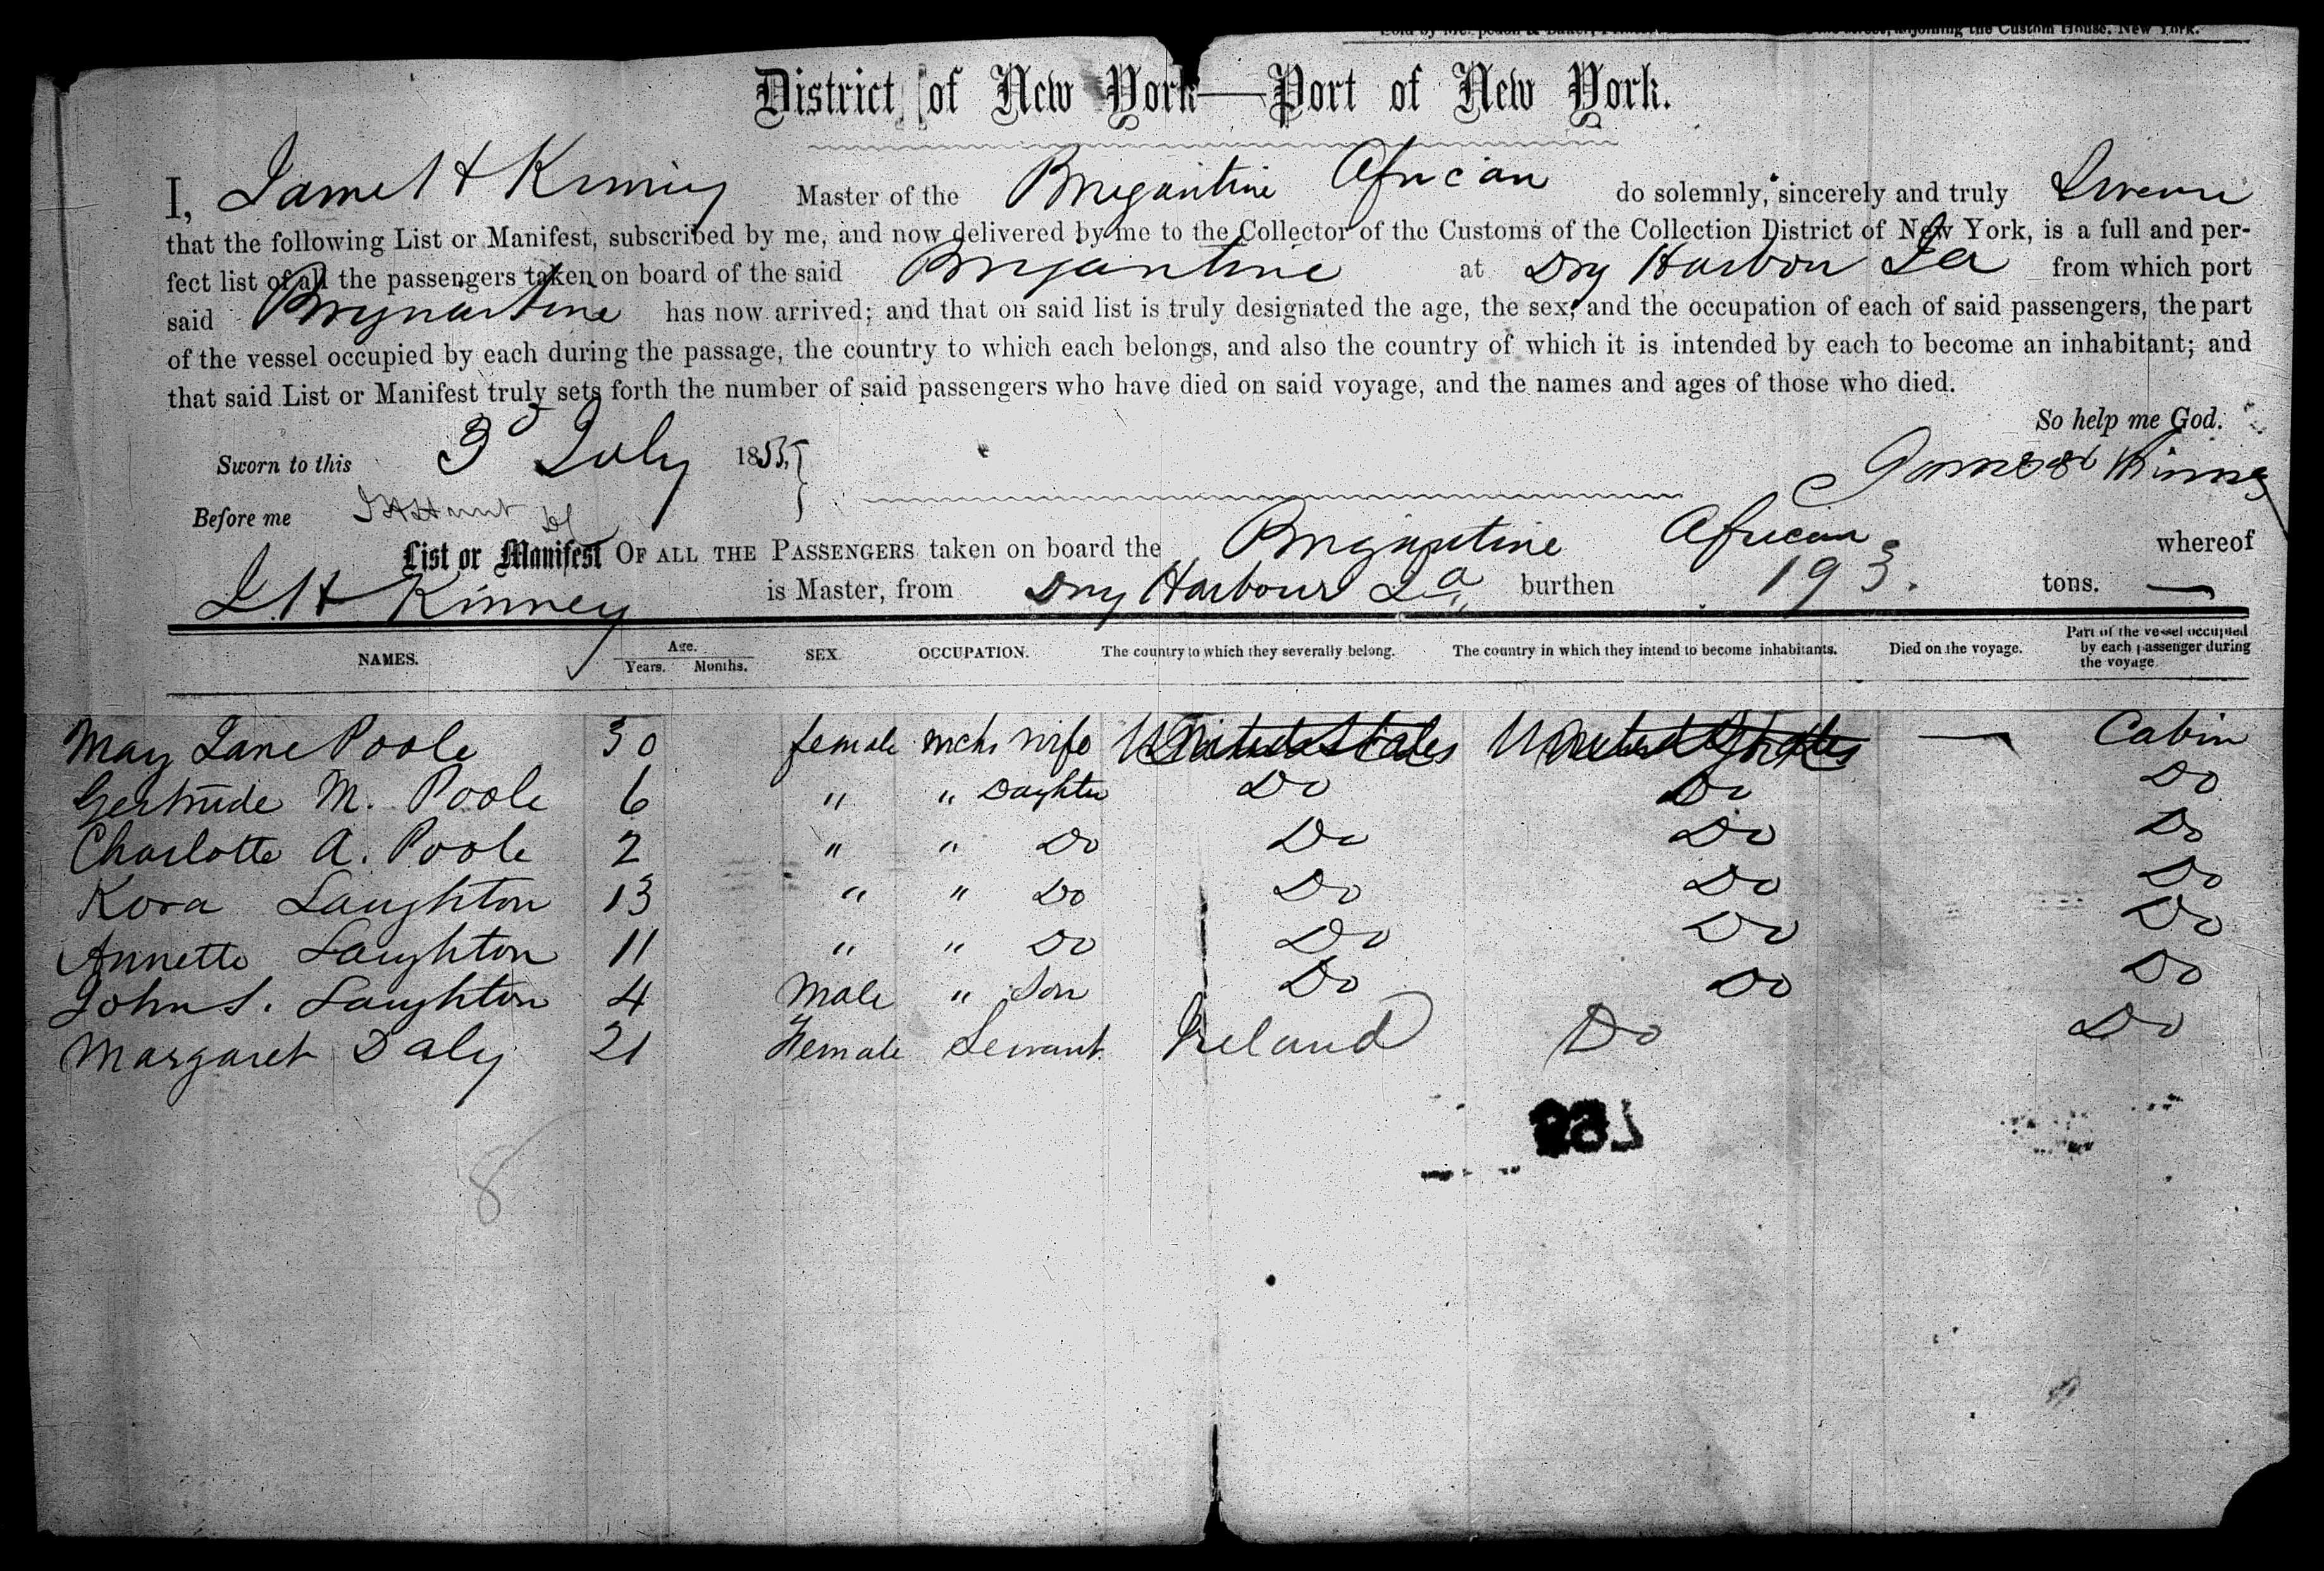 adjoining the Custom House, New York.
District of New York—Port of New York.
I, James H Kinney Master of the Brigantine African do solemnly, sincerely and truly Swear
that the following List or Manifest, subscribed by me, and now delivered by me to the Collector of the Customs of the Collection District of New York, is a full and per-
fect list of all the passengers taken on board of the said Brigantine at Dry Harbour Ja from which port
said Brigantine has now arrived; and that on said list is truly designated the age, the sex, and the occupation of each of said passengers, the part
of the vessel occupied by each during the passage, the country to which each belongs, and also the country of which it is intended by each to become an inhabitant; and
that said List or Manifest truly sets forth the number of said passengers who have died on said voyage, and the names and ages of those who died.
So help me God.
Sworn to this 3d July 1855 James H Kinney
Before me
List or Manifest OF ALL THE PASSENGERS taken on board the Brigantine African whereof
J. H Kinney is Master, from Dry Harbour Ja burthen 193. tons.
NAMES. Age. Years. Months. SEX. OCCUPATION. The country to which they severally belong. The country in which they intend to become inhabitants. Died on the voyage. Part of the vessel occupied by each passenger during the voyage
May Jane Poole 30 female mchs wife United States United States — Cabin
Gertrude M. Poole 6 " " Daughter Do Do Do
Charlotte A. Poole 2 " " Do Do Do Do
Kora Laughton 13 " " Do Do Do Do
Annette Laughton 11 " " Do Do Do Do
John S. Laughton 4 Male " Son Do Do Do
Margaret Daly 21 Female Servant Ireland Do Do
8